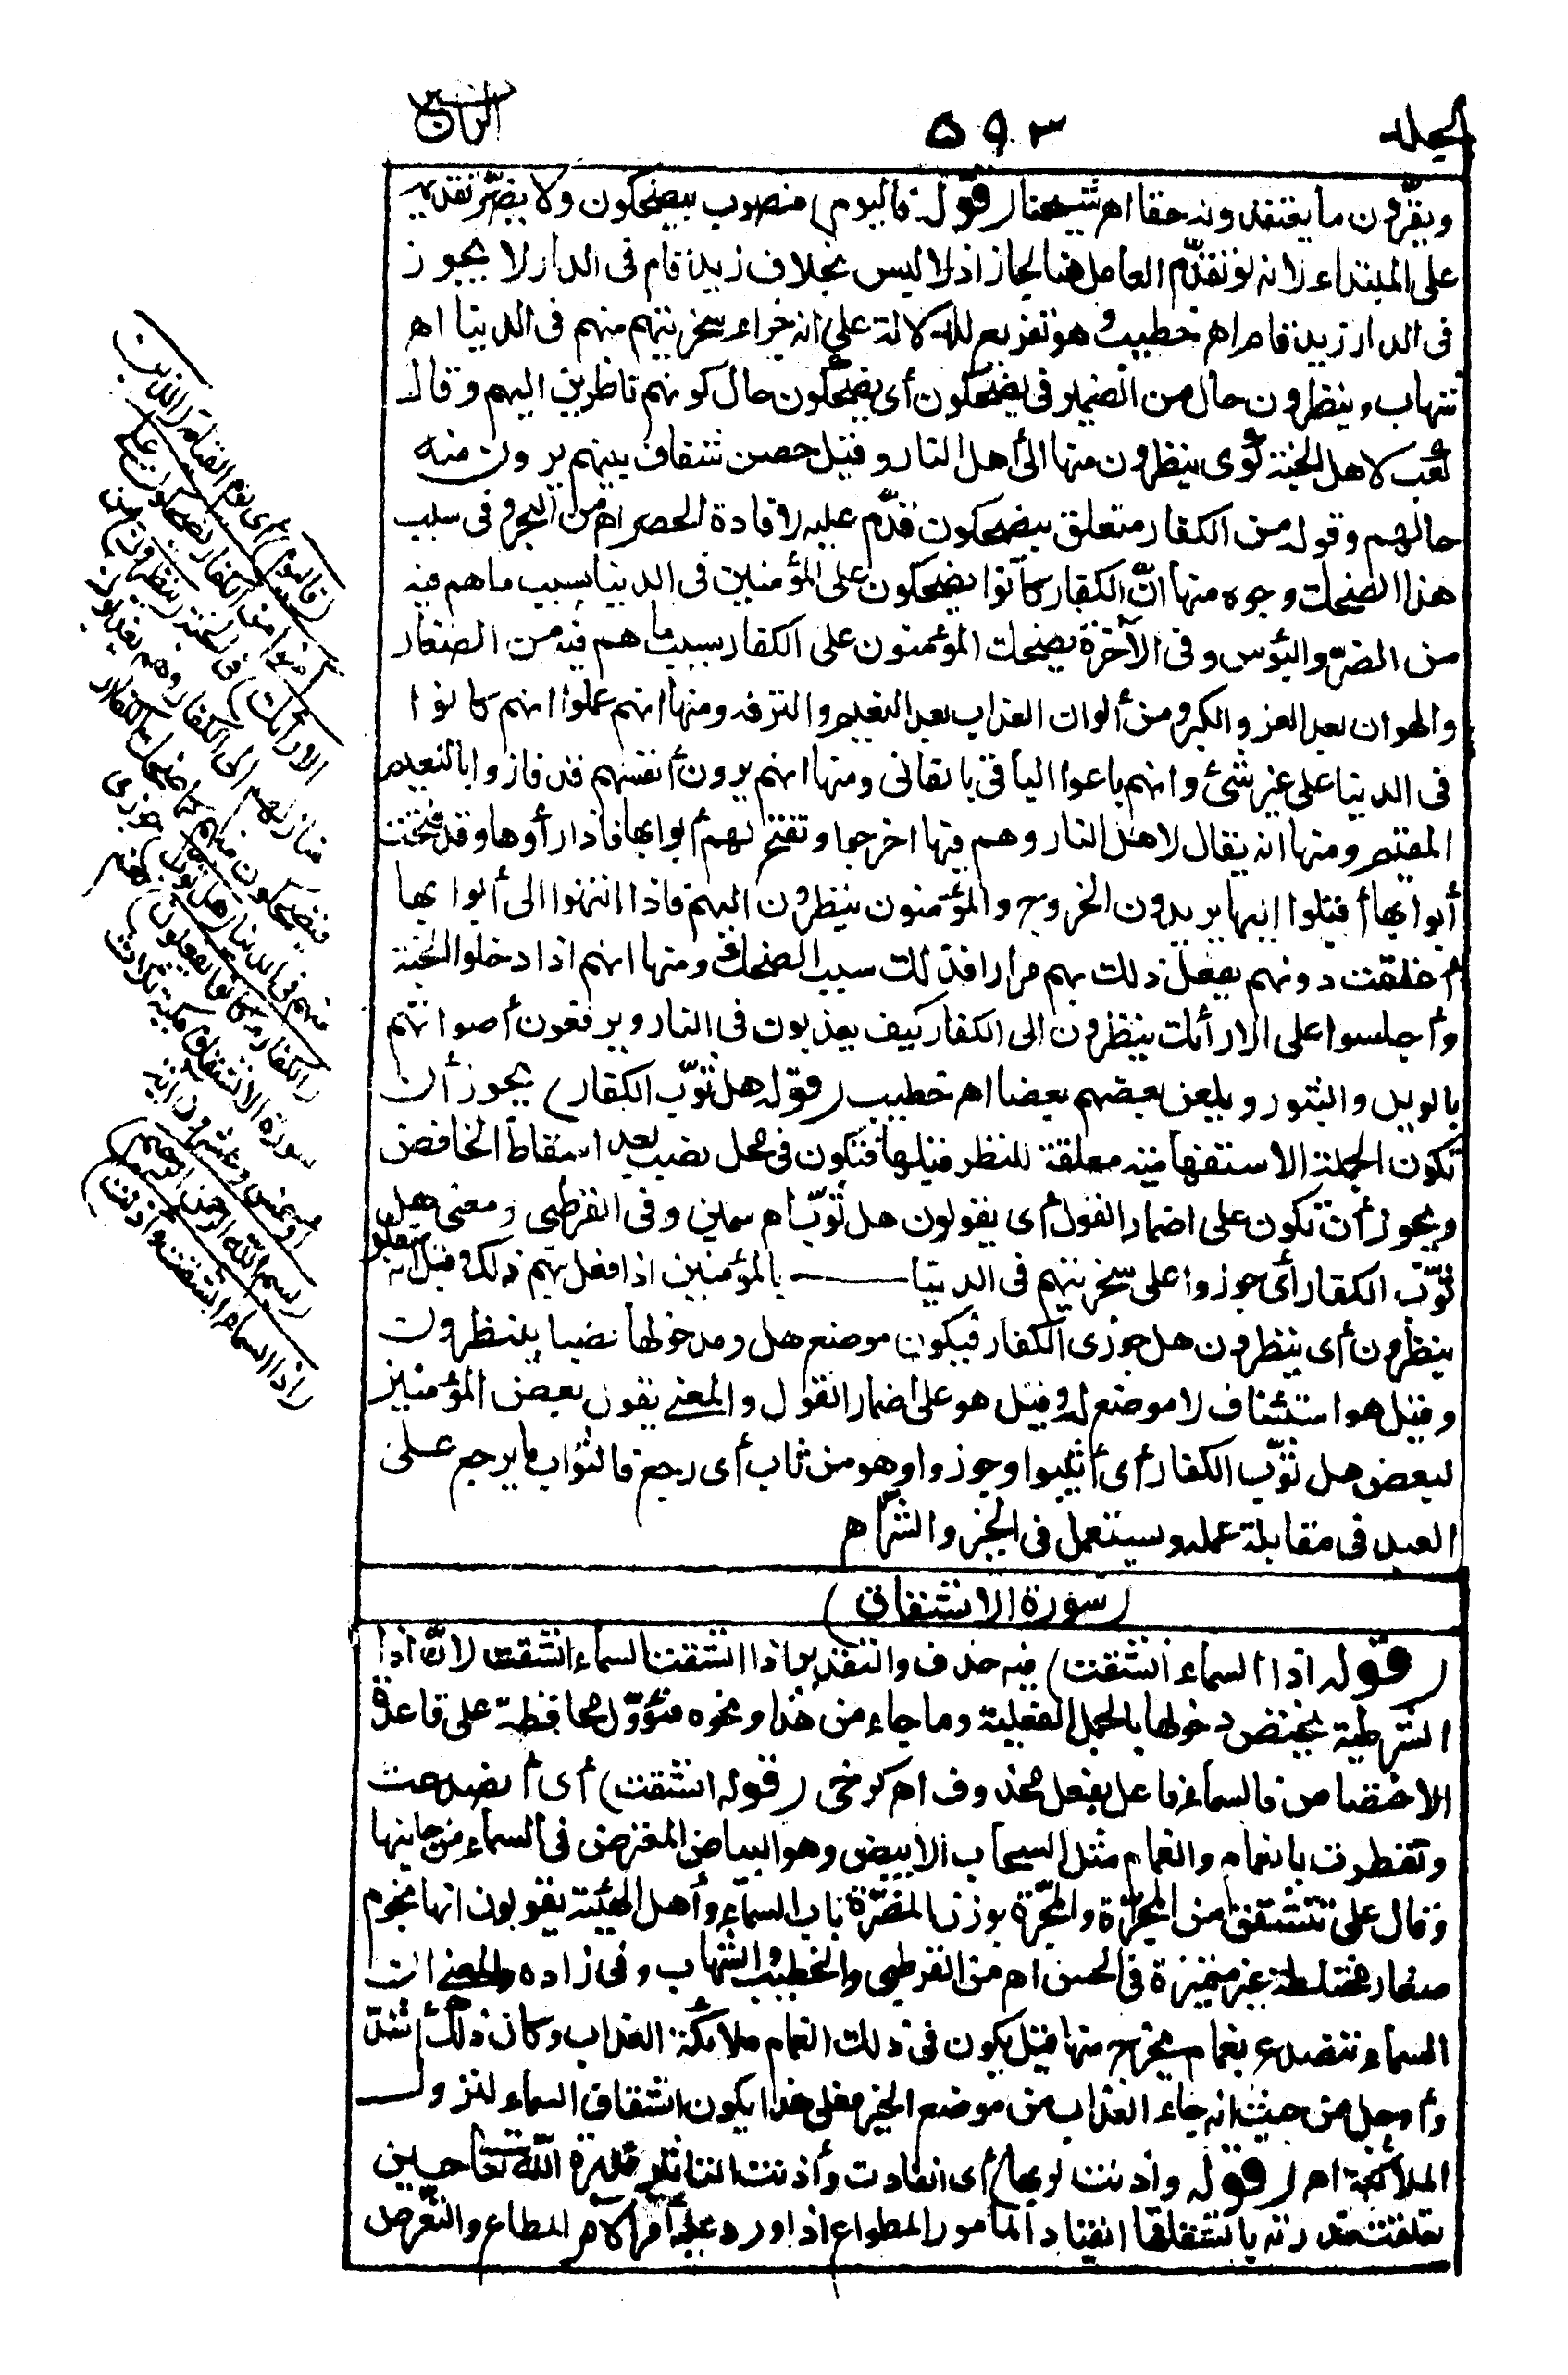 الجلد ٥٩٣ الرابع
ويقرون ما يعتقدونه حقا اهـ شيخنا (قوله فاليوم) منصوب بيضحكون ولا يضر تقديمه
على المبتداء لانه لو تقدم العامل هنا لجاز اذ لا لبس بخلاف زيد قام فى الدار لا يجوز
فى الدار زيد قام اهـ خطيب وهو تفريع للدلالة على انه جزاء سخريتهم منهم فى الدنيا اهـ
شهاب وينظرون حال من الضمير فى يضحكون أى يضحكون حال كونهم ناظرين اليهم وقال
كعب لاهل الجنة كوى ينظرون منها الى أهل النار وقيل حصن شفاف بينهم يرون منه
حالهم وقوله من الكفار متعلق بيضحكون قدم عليه لافادة الحصر اهـ من البحر وفى سبب
هذا الضحك وجوه منها ان الكفار كانوا يضحكون على المؤمنين فى الدنيا بسبب ما هم فيه
من الضر والبؤس وفى الآخرة يضحك المؤمنون على الكفار بسبب ما هم فيه من الصغار
والهوان بعد العز والكبر ومن ألوان العذاب بعد النعيم والترفه ومنها انهم علموا انهم كانوا
فى الدنيا على غير شئ وانهم باعوا الباقى بالفانى ومنها انهم يرون أنفسهم قد فازوا بالنعيم
المقيم ومنها انه يقال لاهل النار وهم فيها اخرجوا وتفتح لهم أبوابها فاذا رأوها وقد فتحت
أبوابها أقبلوا اليها يريدون الخروج والمؤمنون ينظرون اليهم فاذا انتهوا الى أبوابها
أغلقت دونهم يفعل ذلك بهم مرارا فذلك سبب الضحك ومنها انهم اذا دخلوا الجنة
وأجلسوا على الارائك ينظرون الى الكفار كيف يعذبون فى النار ويرفعون أصواتهم
بالويل والثبور ويلعن بعضهم بعضا اهـ خطيب (قوله هل ثوب الكفار) يجوز أن
تكون الجملة الاستفهامية معلقة للنظر قبلها فتكون فى محل نصب بعد اسقاط الخافض
ويجوز أن تكون على اضمار القول أى يقولون هل ثوب اهـ سمين وفى القرطبى ومعنى هل
ثوب الكفار أى جوزوا على سخريتهم فى الدنيا بالمؤمنين اذا فعل بهم ذلك وقيل انه متعلق
بينظرون أى ينظرون هل جوزى الكفار فيكون موضع هل ومدخولها نصبا بينظرون
وقيل هو استئناف لا موضع له وقيل هو على اضمار القول والمعنى يقول بعض المؤمنين
لبعض هل ثوب الكفار أى أثيبوا وجوزوا وهو من ثاب أى رجع فالثواب ما يرجع على
العبد فى مقابلة عمله وسيتعمل فى الخير والشر اهـ
(سورة الانشقاق)
(قوله اذا السماء انشقت) فيه حذف والتقدير اذا انشقت السماء انشقت لان اذا
الشرطية يختص دخولها بالجمل الفعلية وما جاء من هذا ونحوه مؤول محافظة على قاعدة
الاختصاص فالسماء فاعل بفعل محذوف اهـ كرخى (قوله انشقت) أى أنصدعت
وتفطرت بالغمام والغمام مثل السحاب الابيض وهو البياض المعترض فى السماء من جانبها
وقال على تنشق من المجرة والمجرة بوزن المضرة باب السماء وأهل الهيئة يقولون انها نجوم
صغار مختلطة غير متميزة فى الحس اهـ من القرطبى والخطيب والشهاب وفى زاده والمعنى ان
السماء تنصدع بغمام يخرج منها قيل يكون فى ذلك الغمام ملائكة العذاب وكان ذلك أشد
وأوجل من حيث انه جاء العذاب من موضع الخير فعلى هذا يكون انشقاق السماء لنزول
الملائكة اهـ (قوله وأذنت لربها) أى انقادت وأذنت لتأثير قدرة الله تعا حين
تعلقت قدرته بانشقاقها انقياد المأمور المطواع اذا ورد عليه أمر الآمر المطاع والتعرض
(فاليوم) أى يوم القيامة (الذين
آمنوا من الكفار يضحكون على
الارائك) فى الجنة (ينظرون) من
منازلهم الى الكفار وهم يعذبون
فيضحكون منهم كما ضحك الكفار
منهم فى الدنيا (هل ثوب) جوزى
(الكفار ما كانوا يفعلون) نعم
سورة الانشقاق مكية ثلاث
أو خمس وعشرون آية
(بسم الله الرحمن الرحيم
(اذا السماء انشقت وأذنت)